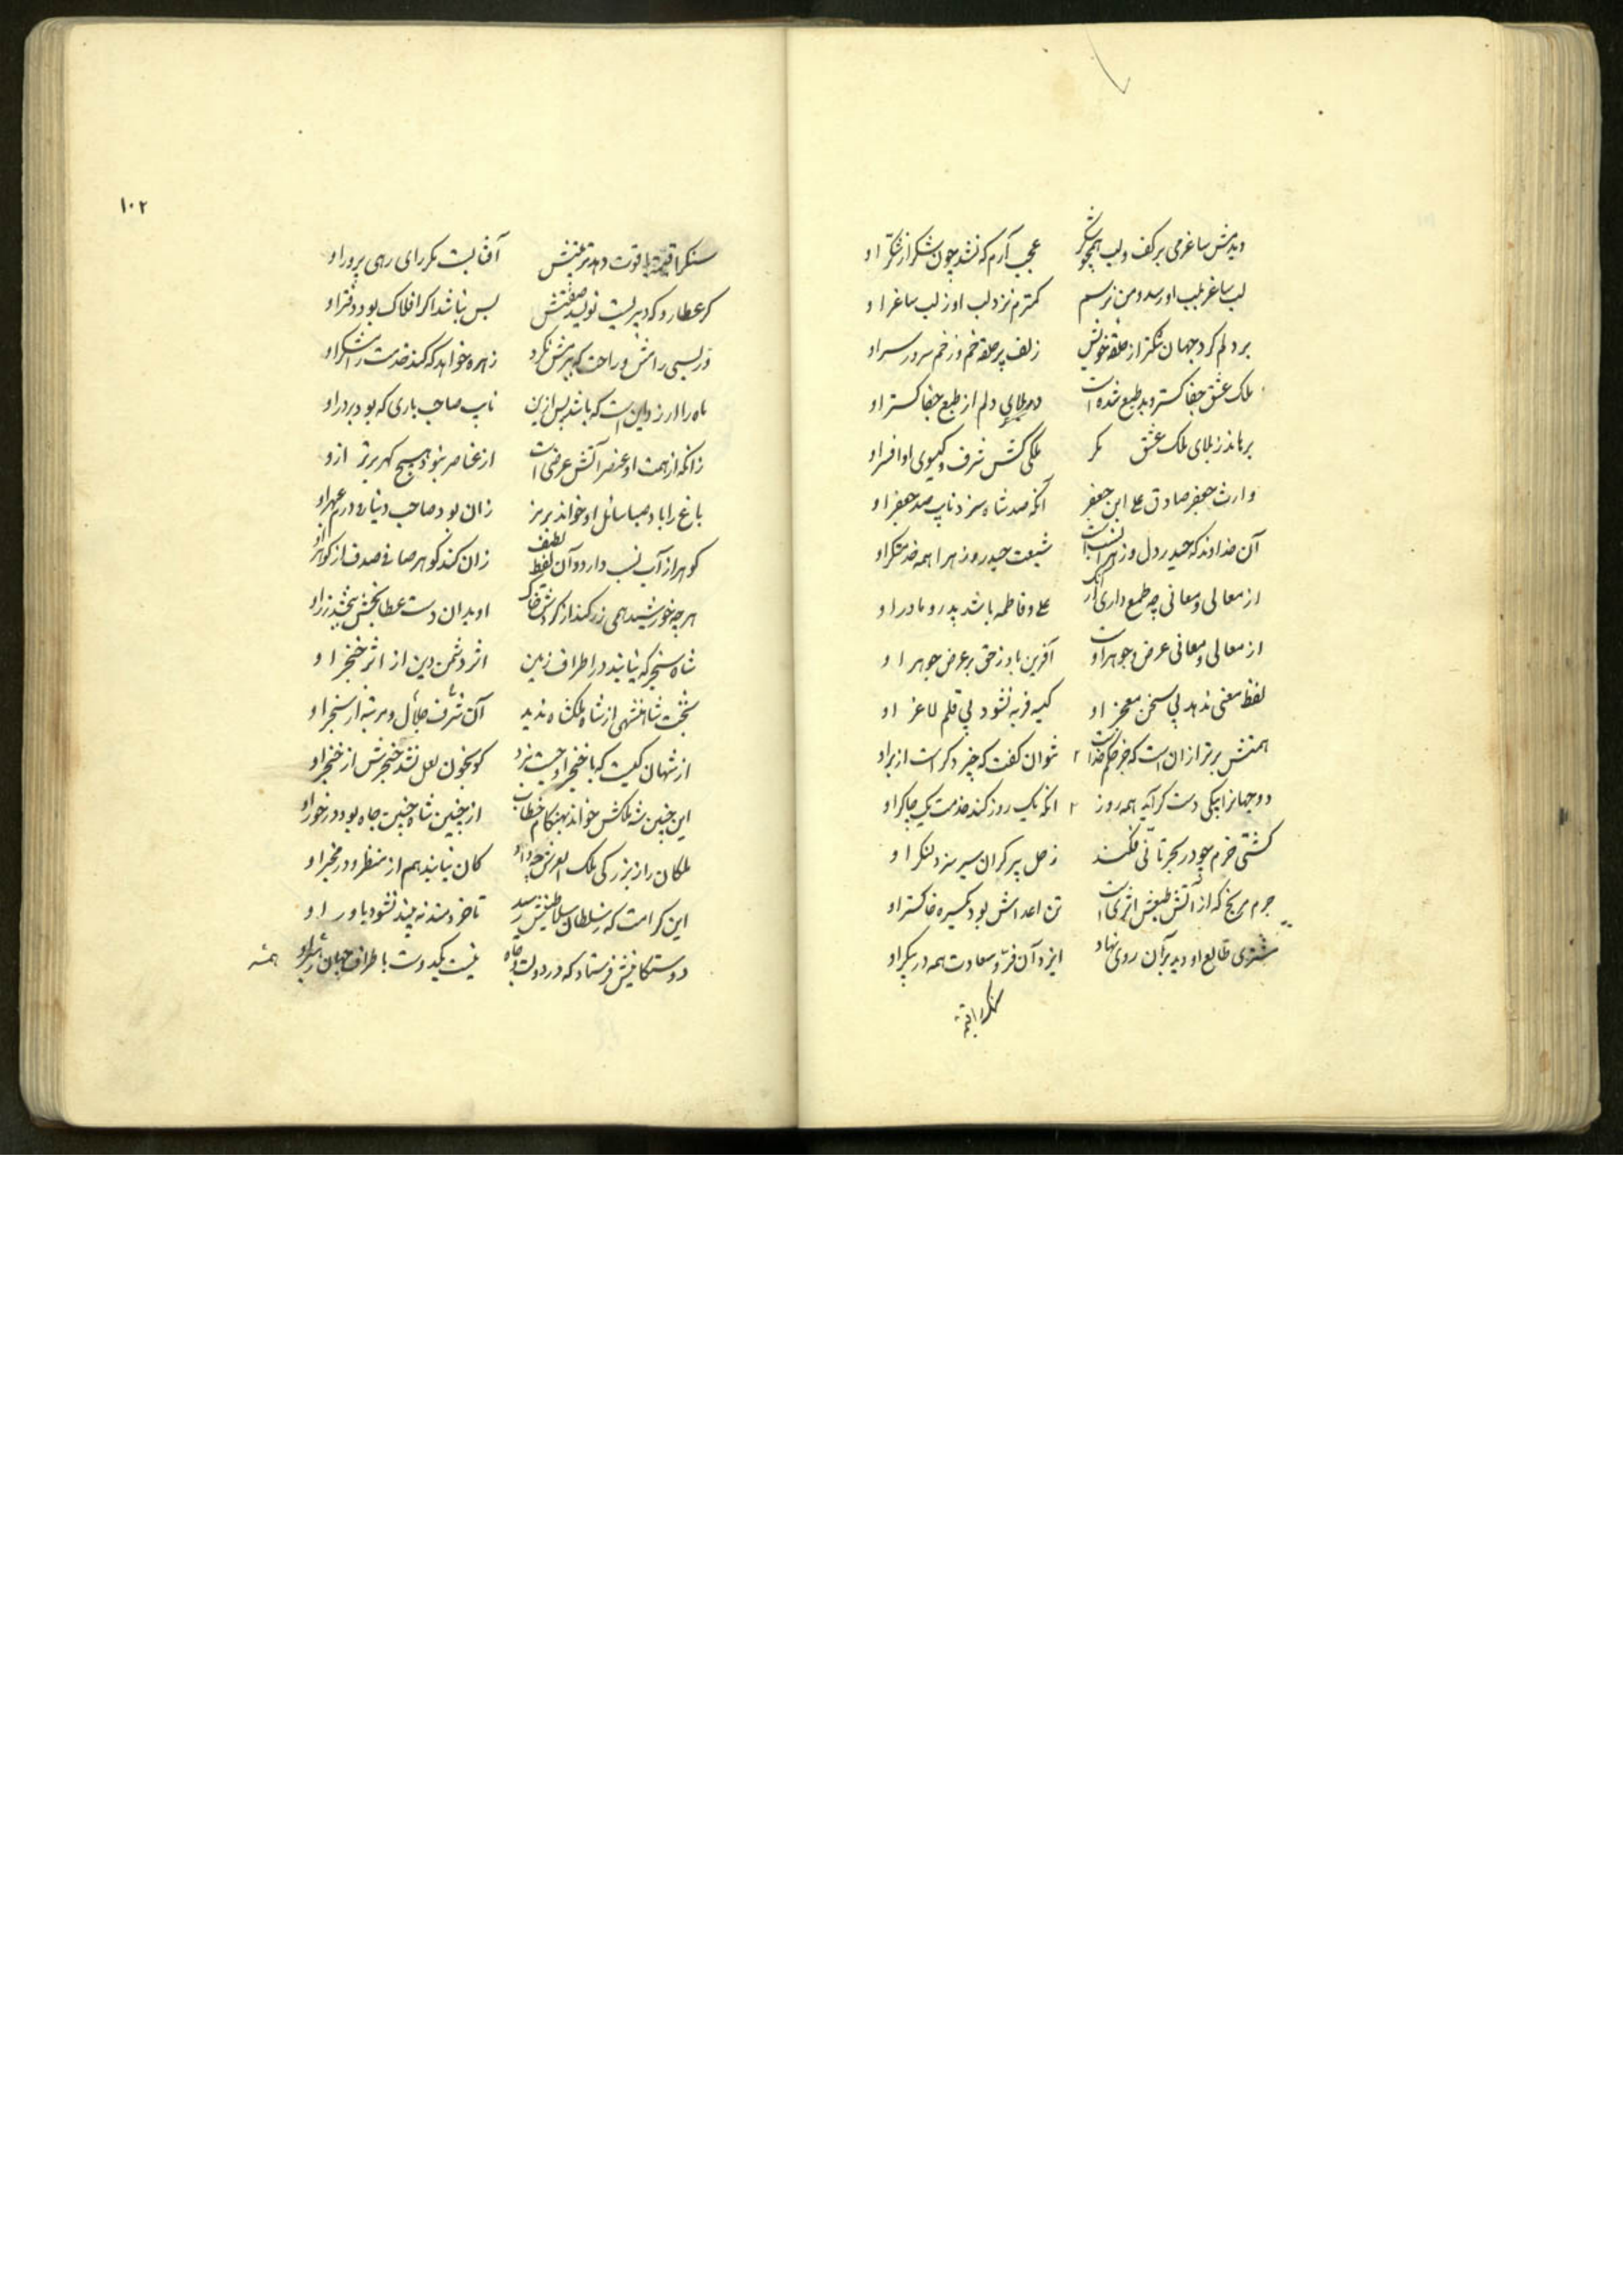 دیدمش ساغر می بر کف و لب همچو شکر عجب آرم که نشد چون شکر از شکر او
لب ساغر بلب او رسد و من نرسم کمترم نزد لب او ز لب ساغر او
بر دلم کرد جهان تنکتر از حلقه خویش زلف پر حلقه و خم در خم سر در سر او
ملک عشق جفاکستر و بد طبع شده است در بلای دلم از طبع جفاکستر او
برهاند ز بلای ملک عشق مکر ملکی کش شرف و کیوی او افسر او
وارث جعفر صادق علی ابن جعفر آنکه صد شاه سزد نایب صد جعفر او
آن خداوند که حیدر دل و زهرا نسب است شیعت حیدر و زهرا همه خدمتکر او
از معالی و معانی چه طمع داری از آنک علی و فاطمه باشد پدر و مادر او
از معالی و معانی عرض و جوهر اوست آفرین باد ز حق بر عرض و جوهر او
لفظ معنی ندهد بی سخن معجز او کیسه فربه نشود بی قلم لاغر او
همتش برتر از آن است که جز حکم خداست نتوان کفت که چیز دکر است از بر او
دو جهانرا بیکی دست کر آید همه روز انکه یک روز کند خدمت یک چاکر او
کشتی خرم چو در بحر تانی فکند زحل پیر کران سیر سزد لنکر او
جرم مریخ که از آتش طبعش اثری است تن اعداش بود یکسره خاکستر او
مشتری طالع او دید بر آن روی نهاد ایزد آن فر و سعادت همه در پیکر او
سنک را قیمت
۱۰۲
سنک را قیمت یاقوت دهد تربیتش آفتابیست مکر رای رهی پرور او
کر عطارد که دبیریست نویسد صفتش بس نباشد اکر افلاک بود دفتر او
زهره خواهد که کند خدمت رامشکر او
ماه را آرزو این است که باشد پس ازین نایب صاحب باری که بود بر در او
زانکه از همت او عنصر آتش عرضی است از عناصر نبود هیچ کهر برتر ازو
باغ را باد صبا سائل او خواند بریز زان بود صاحب دینار و درم عبهر او
کوهر از آب نسب دارد و آن لفظ لطیف زان کند کوهر صافی صدف از کوهر او
هرچه خورشید همی زر کند از کردش خاک او بدان دست عطابخش ببخشد زر او
شاه سنجر که نیابند در اطراف زمین اثر دشمن دین از اثر خنجر او
بتخت شاهنشهی از شاه ملکشاه ندید آن شرف و جلال و مرتبه از سنجر او
از شهان کیست که با خنجر او جست نبرد کو بخون لعل نشد خنجرش از خنجر او
این چنین شه ملکش خواند بهنکام خطاب از چنین شاه چنین جاه بود در خور او
ملکان را ز بزرکی ملک العرش چو داد کان نیابند هم از منظر و در مخبر او
این کرامت که ز سلطان سلاطینش رسد تا خردمند نه بیند نشود باور او
دوستکانیش فرستاد که در دولت و جاه نیست یکدوست باطراف جهان
همسر